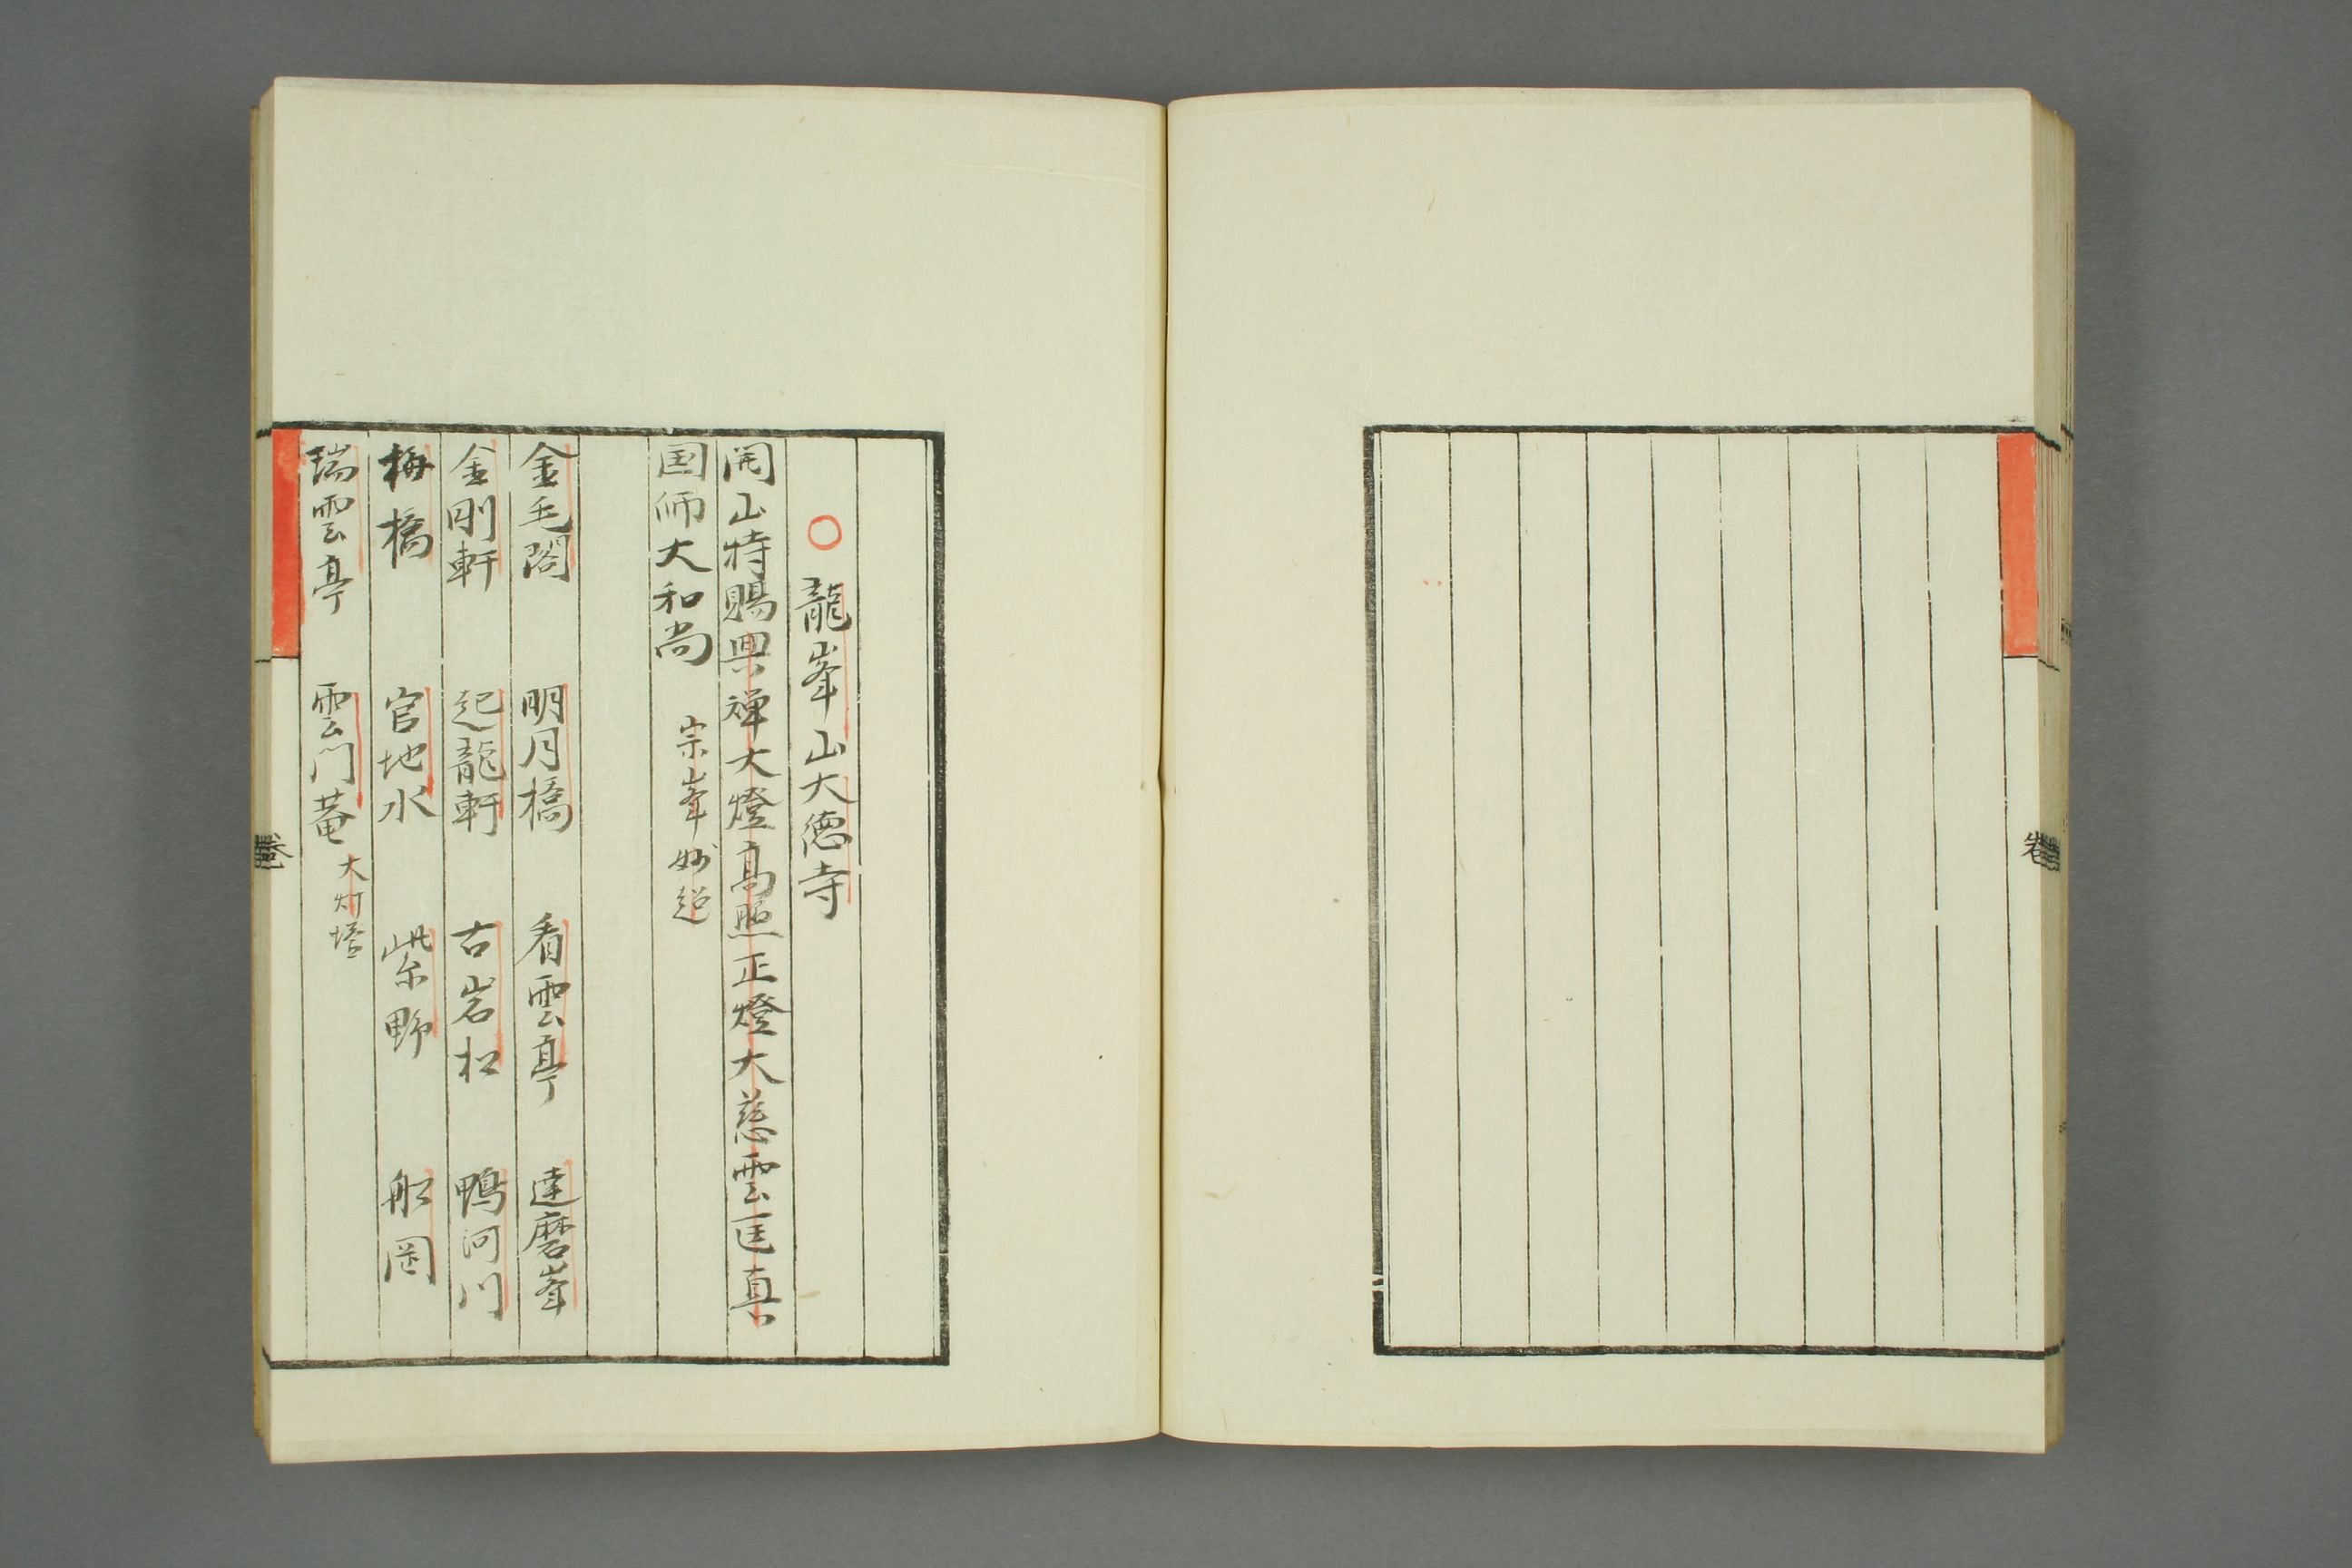 ○龍峯山大徳寺
開山特賜興禅大燈高照正燈大慈雲匡真
国师大和尚 宗峯妙超
金毛閣 明月橋 看雲亭 達磨峯
金刚軒 起龍軒 古岩松 鴨河川
梅橋 官地水 紫野 船岡
瑞雲亭 雲门菴 大灯塔